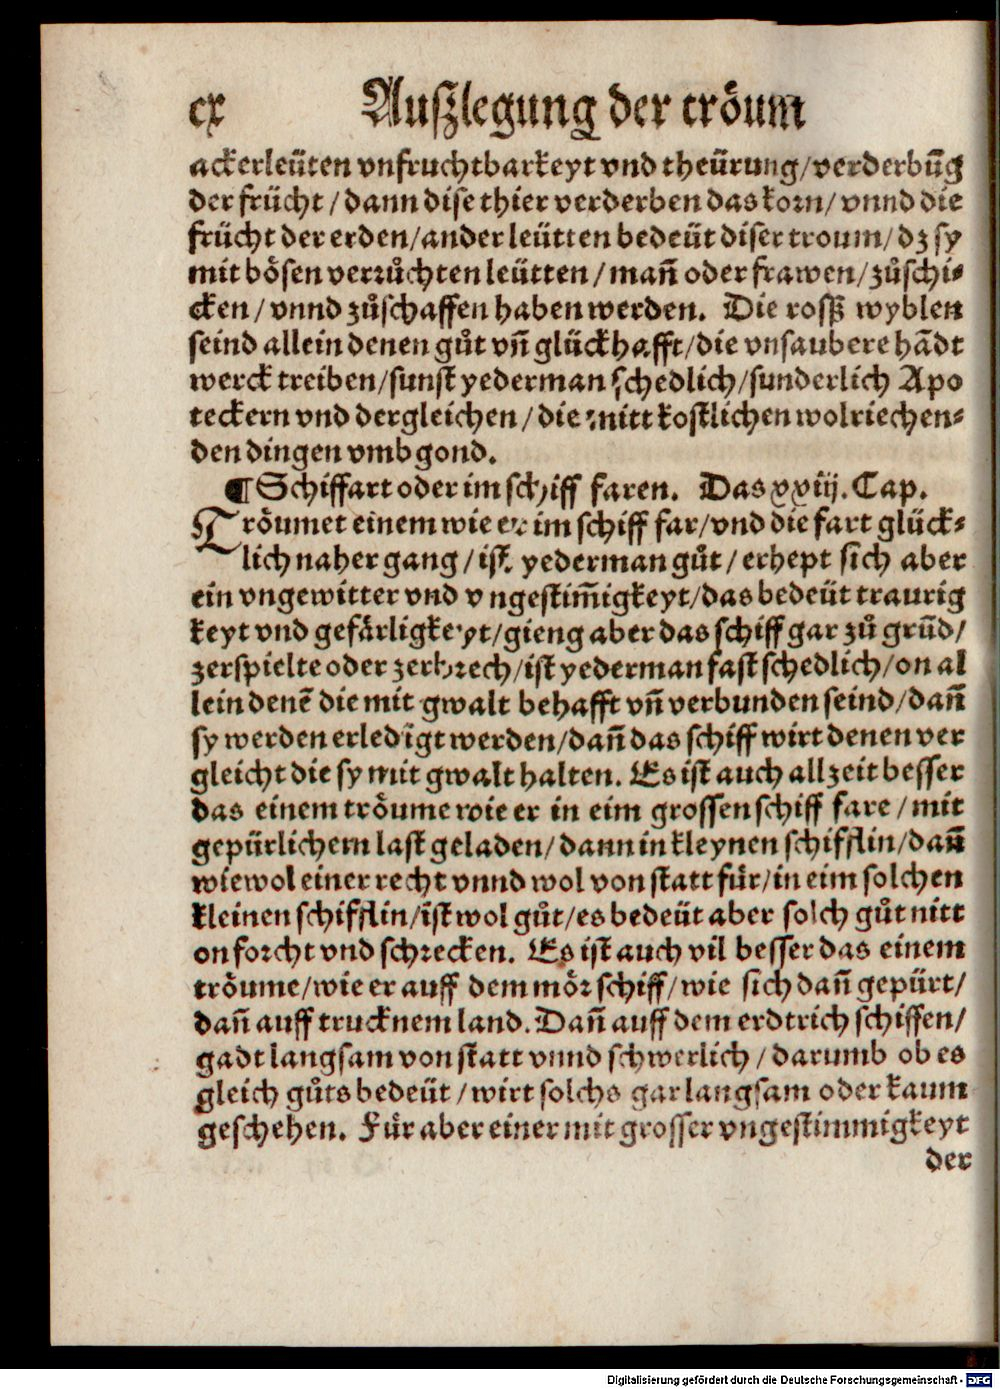 cx Auſzlegung der tröum
ackerleüten vnfruchtbarkeyt vnd theürung/verderbūg
der frücht/dann dise thier verderben das korn/vnnd die
frücht der erden/ander leütten bedeüt diser troum/dz sy
mit bösen verrůchten leütten/mañ oder frawen/zůschi⸗
cken/vnnd zůschaffen haben werden. Die rosſz wyblen
seind allein denen gůt vñ glückhafft/die vnsaubere hādt
werck treiben/sunst yederman schedlich/sunderlich Apo
teckern vnd dergleichen/die mitt kostlichen wolriechen⸗
den dingen vmbgond.
¶Schiffart oder im schiff faren. Das xxiij. Cap.
Tröumet einem wie er im schiff far/vnd die fart glück⸗
lich naher gang/ist yederman gůt/erhept sich aber
ein vngewitter vnd vngestim̄igkeyt/das bedeüt traurig
keyt vnd gefärligkeyt/gieng aber das schiff gar zů grūd/
zerspielte oder zerbrech/ist yederman fast schedlich/on al
lein denē die mit gwalt behafft vñ verbunden seind/dañ
sy werden erledigt werden/dañ das schiff wirt denen ver
gleicht die sy mit gwalt halten. Es ist auch allzeit besser
das einem tröume wie er in eim grossen schiff fare/mit
gepürlichem last geladen/dann in kleynen schifflin/dañ
wiewol einer recht vnnd wol von statt für/in eim solchen
kleinen schifflin/ist wol gůt/es bedeüt aber solch gůt nitt
on forcht vnd schrecken. Es ist auch vil besser das einem
tröume/wie er auff dem mör schiff/wie sich dañ gepürt/
dañ auff trucknem land. Dañ auff dem erdtrich schiffen/
gadt langsam von statt vnnd schwerlich/darumb ob es
gleich gůts bedeüt/wirt solchs gar langsam oder kaum
geschehen. Für aber einer mit grosser vngestimmigkeyt
der
Digitalisierung gefördert durch die Deutsche Forschungsgemeinschaft - DFG